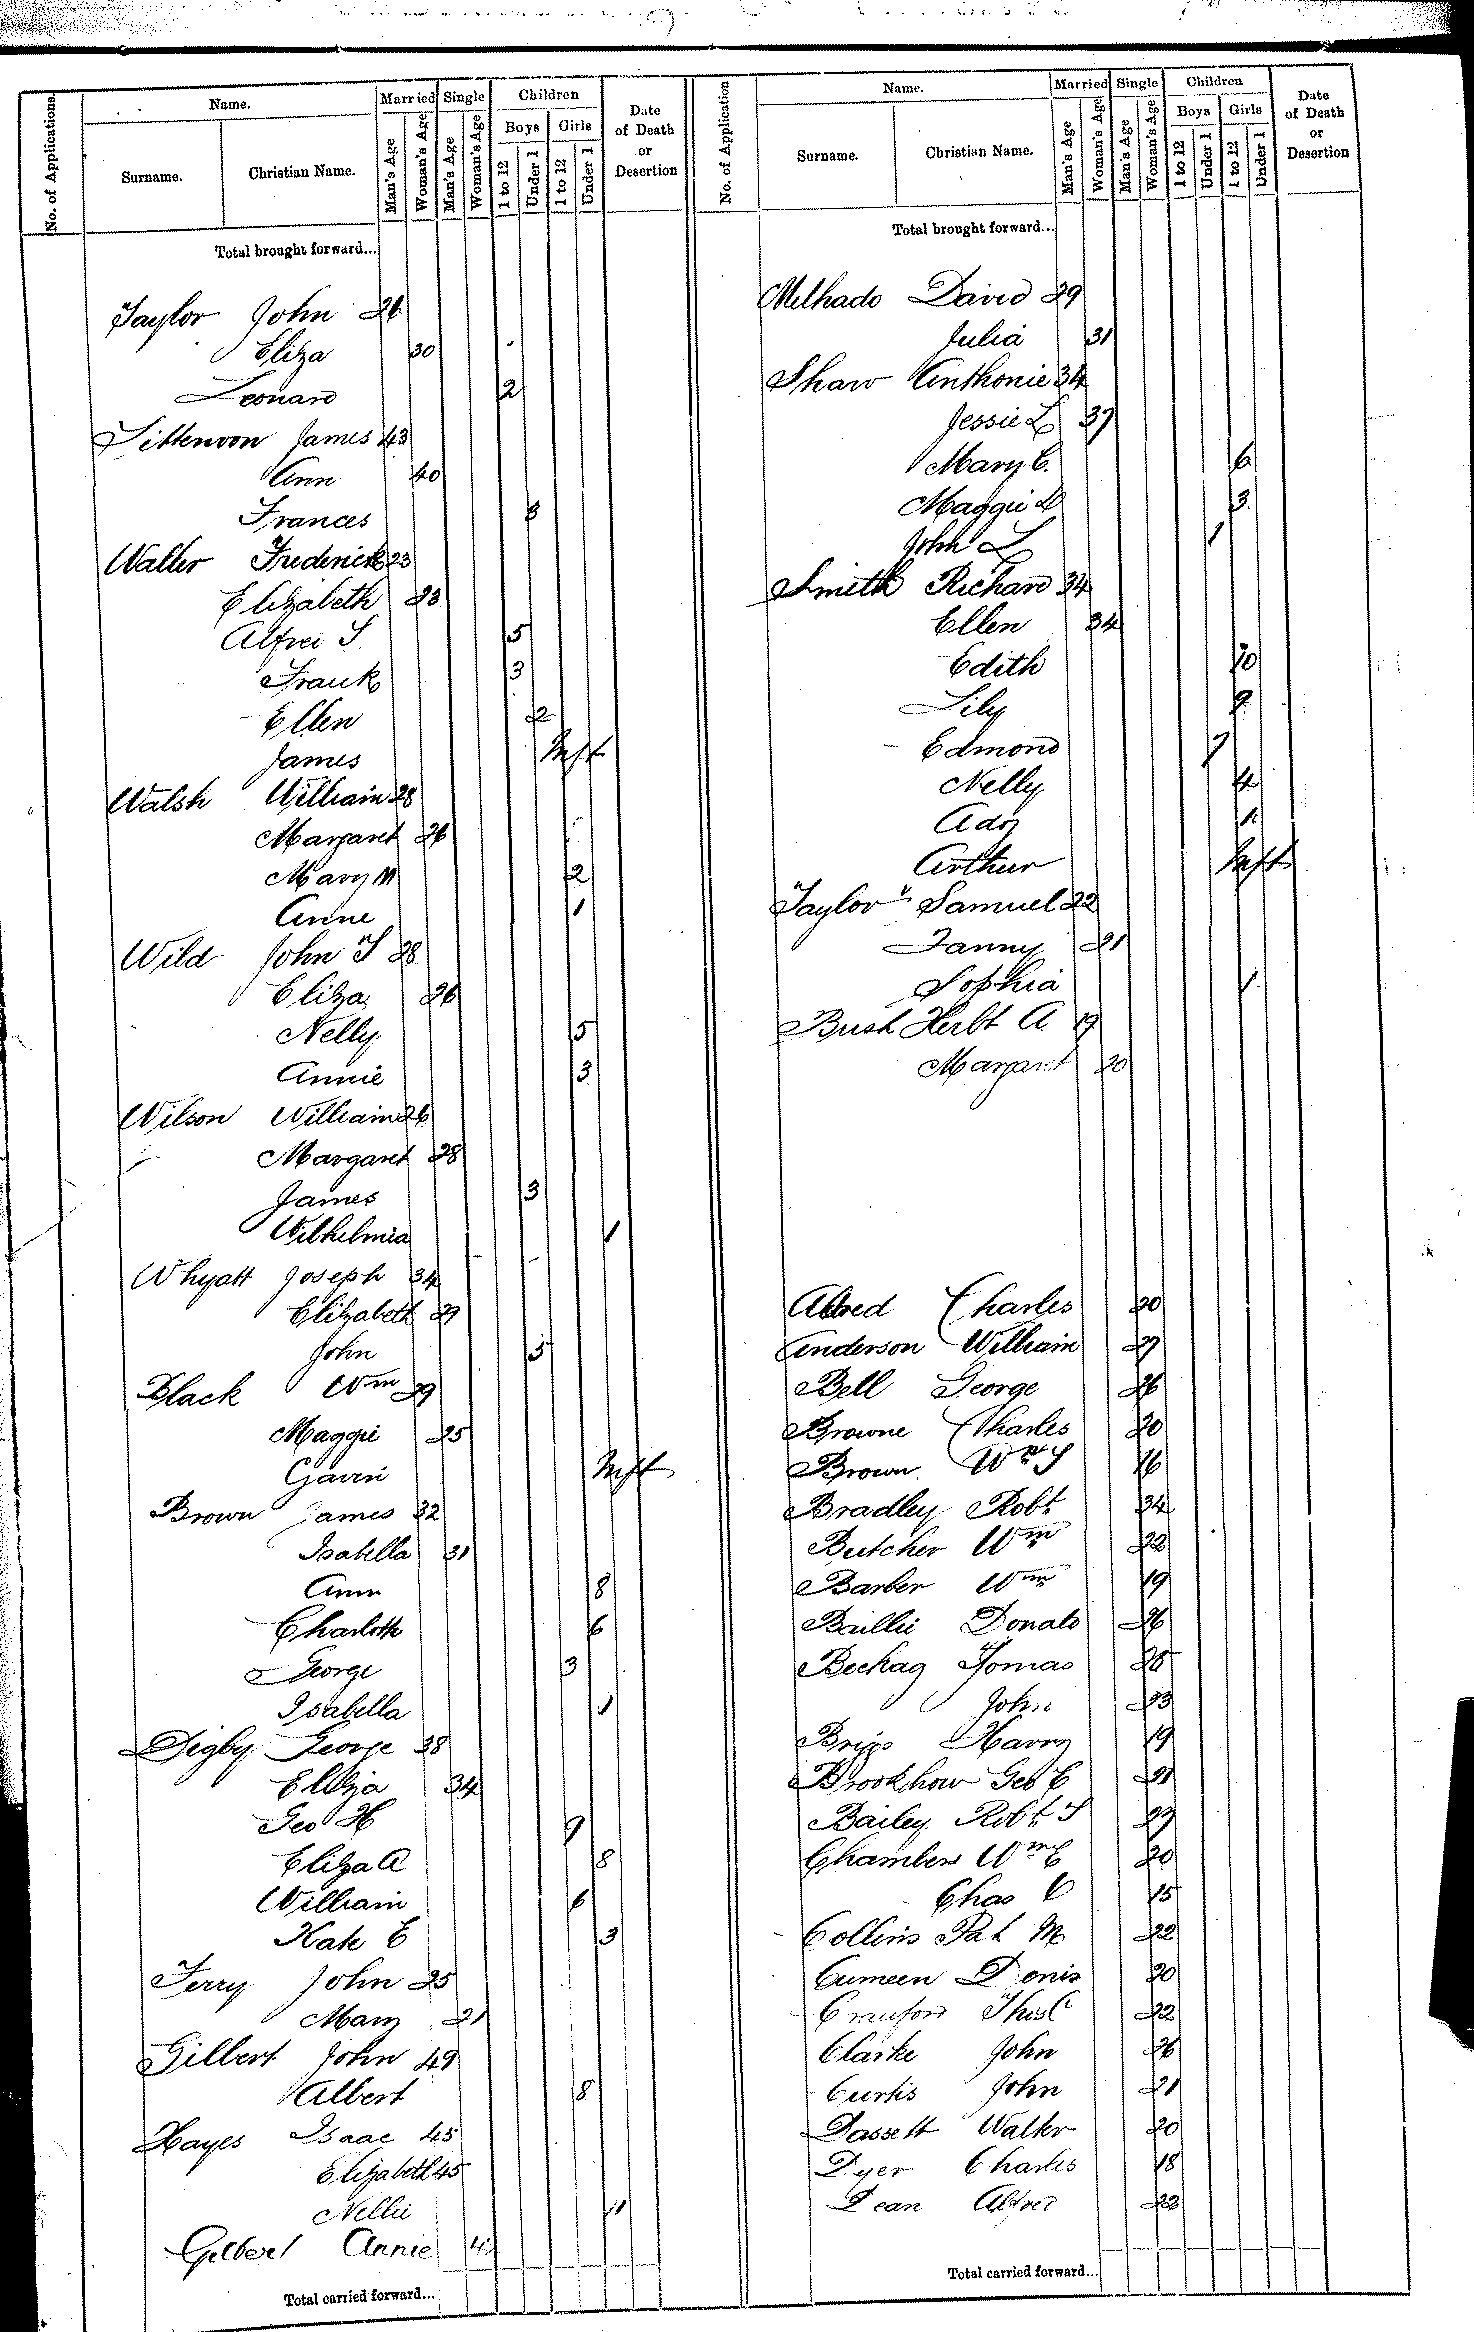 No. of Applications. Name. Married Single Children Date of Death or Desertion
Surname. Christian Name. Man's Age Woman's Age Man's Age Woman's Age Boys 1 to 12 Under 1 Girls 1 to 12 Under 1
Total brought forward...
Taylor John 26
Eliza 30
Leonard 2
James 43
Ann 40
Frances 3
Walter Frederick 23
Elizabeth 23
Alfred S 5
Frank 3
Ellen 2
James Inft
Walsh William 28
Margaret 26
Mary M 2
Anne 1
Wild John S 28
Eliza 26
Nelly 5
Annie 3
Wilson William 26
Margaret 28
James 3
Wilhelmia 1
Whyatt Joseph 34
Elizabeth 29
John 5
Black Wm 29
Maggie 25
Gavin Inft
Brown James 32
Isabella 31
Ann 8
Charlotte 6
George 3
Isabella 1
Digby George 38
Eliza 34
Geo H 9
Eliza A 8
William 6
Kate E 3
Terry John 25
Mary 21
Gilbert John 49
Albert 8
Hayes Isaac 45
Elizabeth 45
Nellie 11
Gilbert Annie 4
Total carried forward...
No. of Application Name. Married Single Children Date of Death or Desertion
Surname. Christian Name. Man's Age Woman's Age Man's Age Woman's Age Boys 1 to 12 Under 1 Girls 1 to 12 Under 1
Total brought forward...
Melhado David 29
Julia 31
Shaw Anthonie 34
Jessie L 37
Mary C. 6
Maggie D 3
John L 1
Smith Richard 34
Ellen 34
Edith 10
Lily 9
Edmond 7
Nelly 4
Ada 1
Arthur Inft
Taylor Samuel 22
Fanny 21
Sophia 1
Bush Herbt A. 19
Margaret 20
Alfred Charles 20
Anderson William 27
Bell George 26
Browne Charles 20
Brown Wm S 16
Bradley Robt 34
Butcher Wm 22
Barber Wm 19
Baillie Donald 26
Beckag Tomas 25
John 23
Briggs Harry 19
Geo E 21
Bailey Robt S 27
Chambers Wm E 20
Chas C 15
Collins Pat M 22
Cumeen Denis 20
Crauford Thos C 22
Clarke John 26
Curtis John 21
Dassett Walter 20
Dyer Charles 18
Dean Alfred 22
Total carried forward...